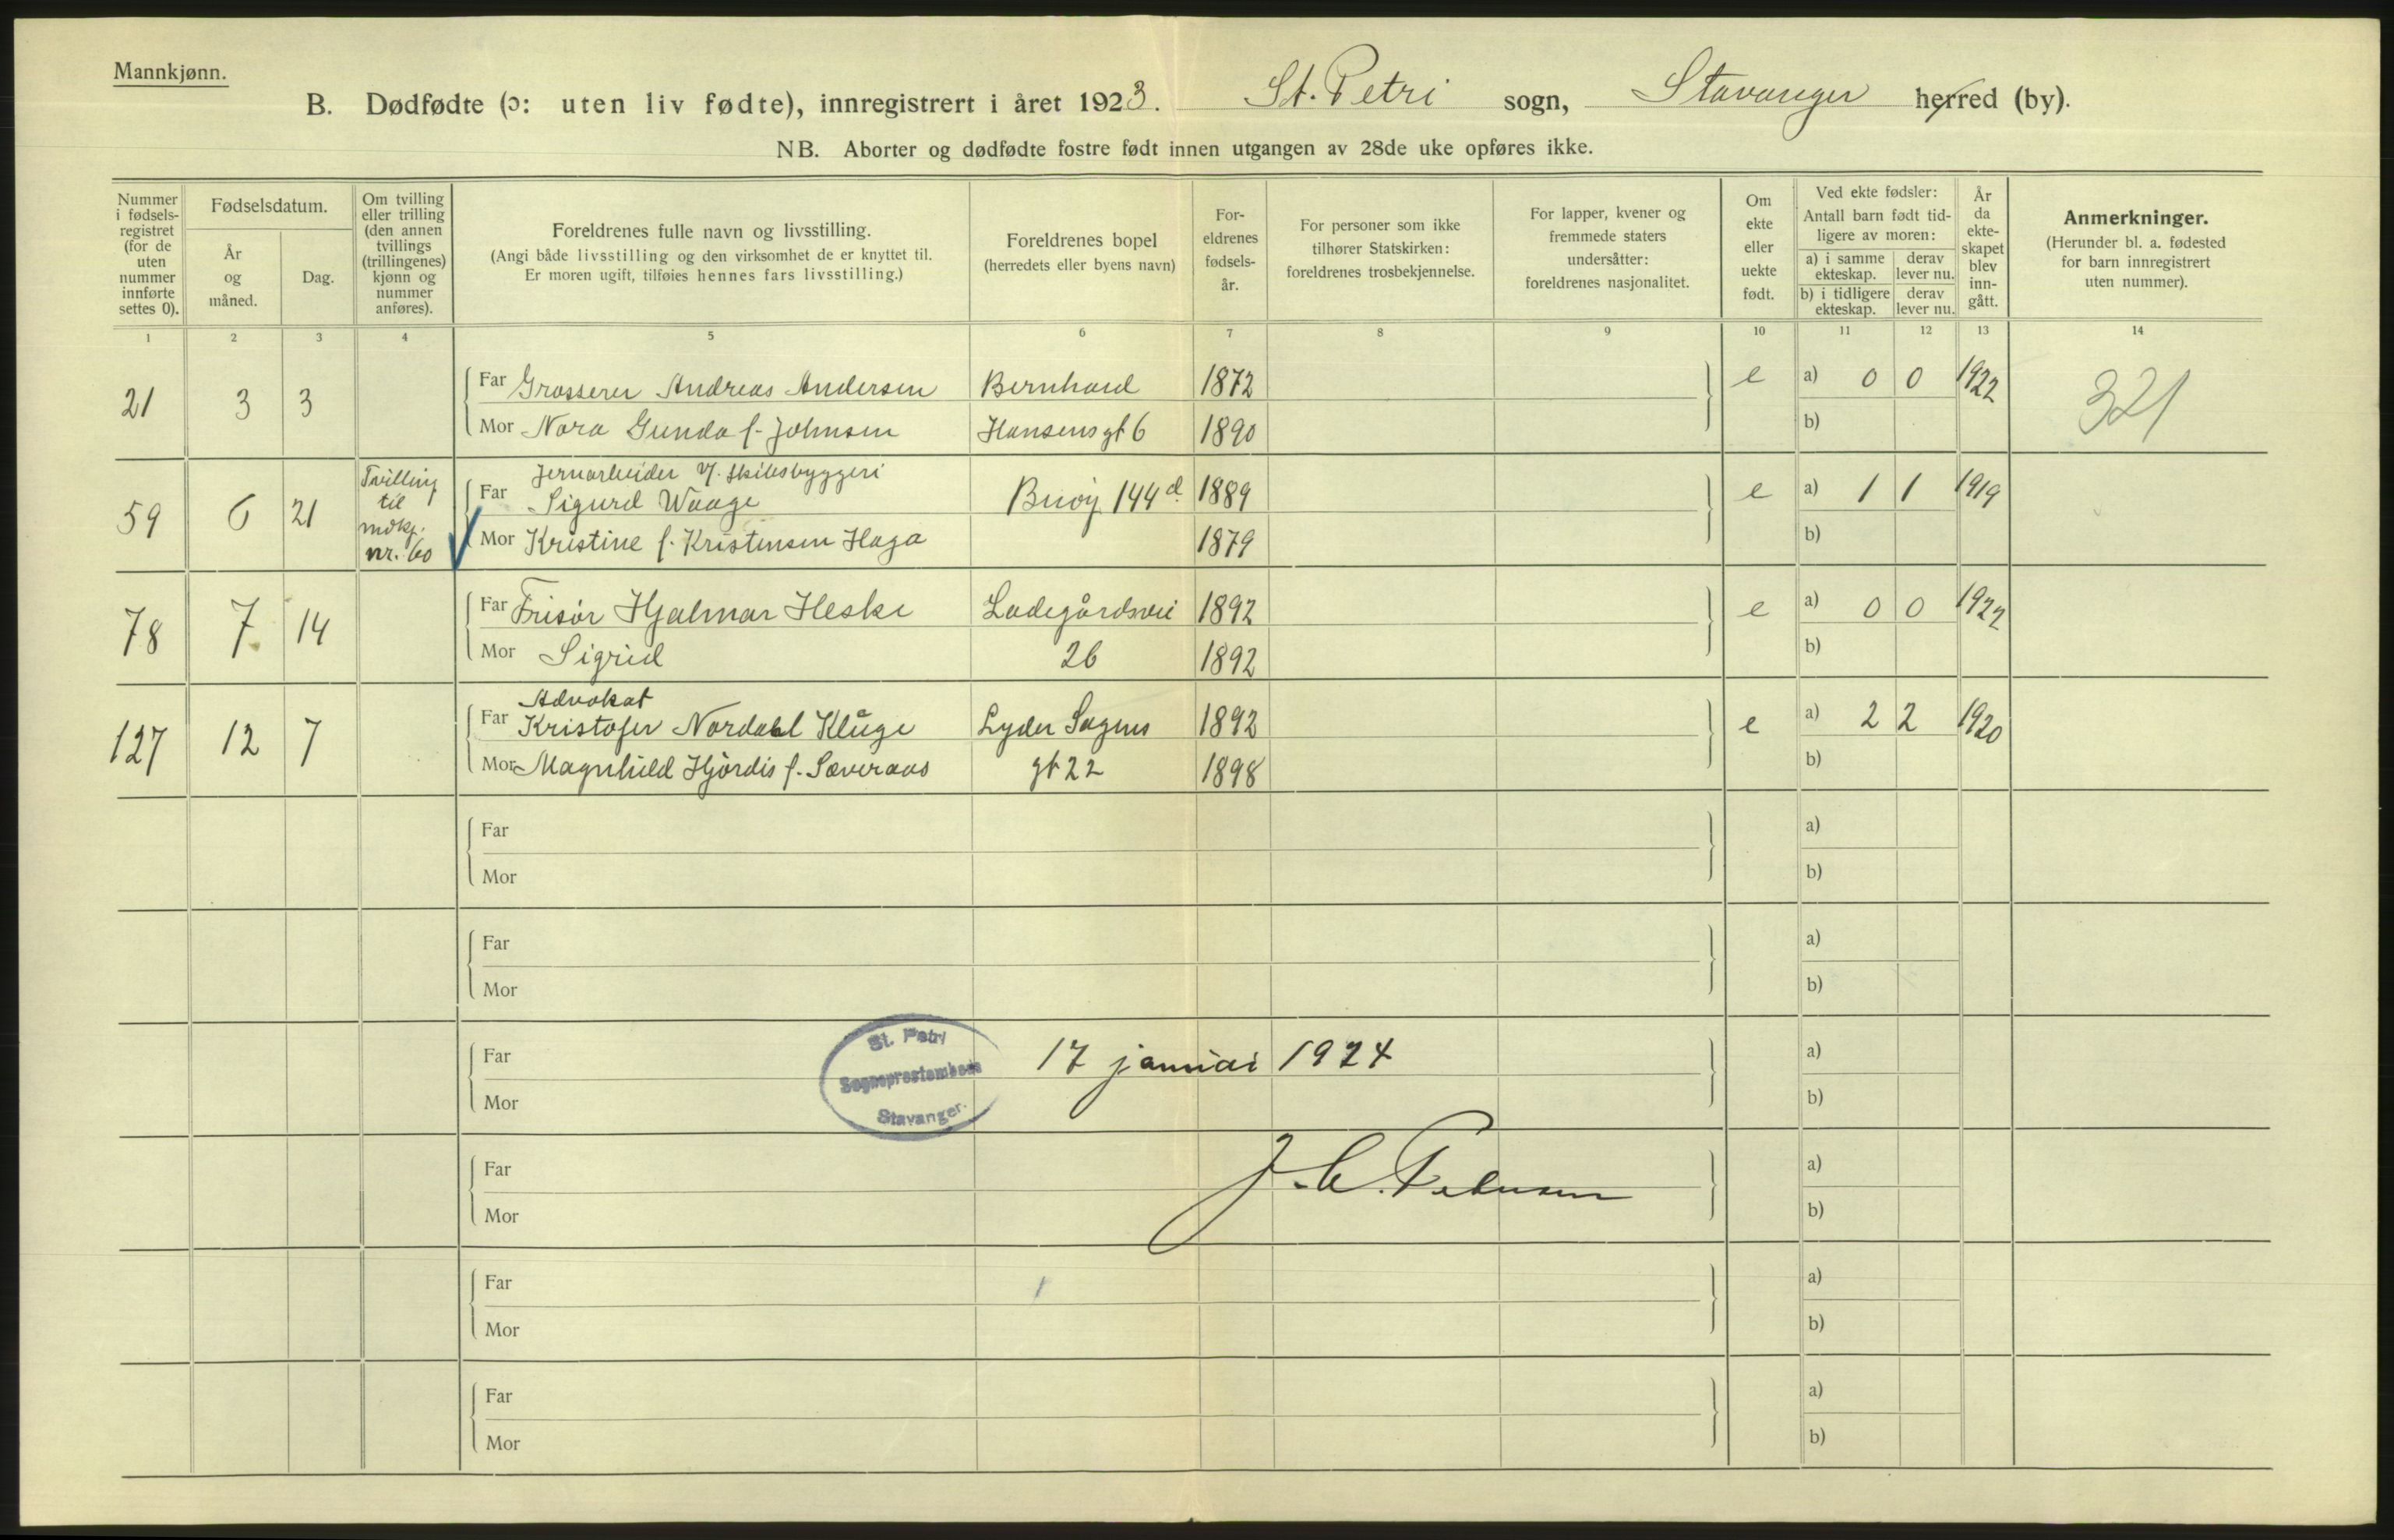 Mannkjønn.
B. Dødfødte (ɔ: uten liv fødte), innregistrert i året 1923. St. Petri sogn, Stavanger herred (by).
NB. Aborter og dødfødte fostre født innen utgangen av 28de uke opføres ikke.
Nummer i fødsels-registret (for de uten nummer innførte settes 0).
Fødselsdatum.
År og måned.
Dag.
Om tvilling eller trilling (den annen tvillings (trillingenes) kjønn og nummer anføres).
Foreldrenes fulle navn og livsstilling.
(Angi både livsstilling og den virksomhet de er knyttet til.
Er moren ugift, tilføies hennes fars livsstilling.)
Foreldrenes bopel
(herredets eller byens navn)
For-eldrenes fødsels-år.
For personer som ikke tilhører Statskirken: foreldrenes trosbekjennelse.
For lapper, kvener og fremmede staters undersåtter: foreldrenes nasjonalitet.
Om ekte eller uekte født.
Ved ekte fødsler:
Antall barn født tid-ligere av moren:
a) i samme ekteskap.
derav lever nu.
b) i tidligere ekteskap.
derav lever nu.
År da ekte-skapet blev inn-gått.
Anmerkninger.
(Herunder bl. a. fødested for barn innregistrert uten nummer).
1 2 3 4 5 6 7 8 9 10 11 12 13 14
21 3 3 Far Grosserer Andreas Andersen Bernhard 1872 e a) 0 0 1922 321
Mor Nora Gunda f. Johnsen Hansens gt 6 1890 b)
Tvilling til mdkj. nr. 60
Jernarbeider v/. skibsbyggeri
59 6 21 Far Sigurd Waage Buøy 144 d. 1889 e a) 1 1 1919
Mor Kristine f. Kristensen Haga 1879 b)
78 7. 14 Far Frisør Hjalmar Heske Ladegårdsvei 1892 e a) 0 0 1922
Mor Sigrid 26 1892 b)
Advokat
127 12 7 Far Kristofer Nordahl Kluge Lyder Sagens 1892 e a) 2 2 1920
Mor Magnhild Hjørdis f. Sæveraas gt 22 1898 b)
Far a)
Mor b)
Far a)
Mor b)
St. Petri
Sogneprestembede
Stavanger.
Far 17 januar 1924 a)
Mor b)
Far J. C. Petersen a)
Mor b)
Far a)
Mor b)
Far a)
Mor b)